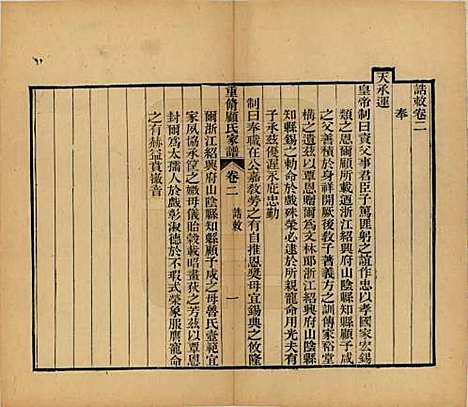 誥敕卷二
奉
天承運
皇帝制曰資父事君臣子篤匪躬之誼作忠以孝國家宏錫
類之恩爾顧所載迺浙江紹興府山陰縣知縣顧予咸
之父善積於身祥開厥後教子著義方之訓傳家裕堂
構之遺茲以覃恩贈爾為文林郎浙江紹興府山陰縣
知縣錫之勅命於戲殊榮必逮於所親寵命用光夫有
子承茲優渥永庇忠勤
制曰奉職在公嘉教勞之有自推恩奬母宜錫典之攸隆
重脩顧氏家譜 卷二 誥敕 一
爾浙江紹興府山陰縣知縣顧予咸之母魯氏壼範宜
家夙協承筐之媺母儀貽穀載昭畫荻之芳茲以覃恩
封爾為太孺人於戲彰淑德於不瑕式榮象服膺寵命
之有赫益賁徽音